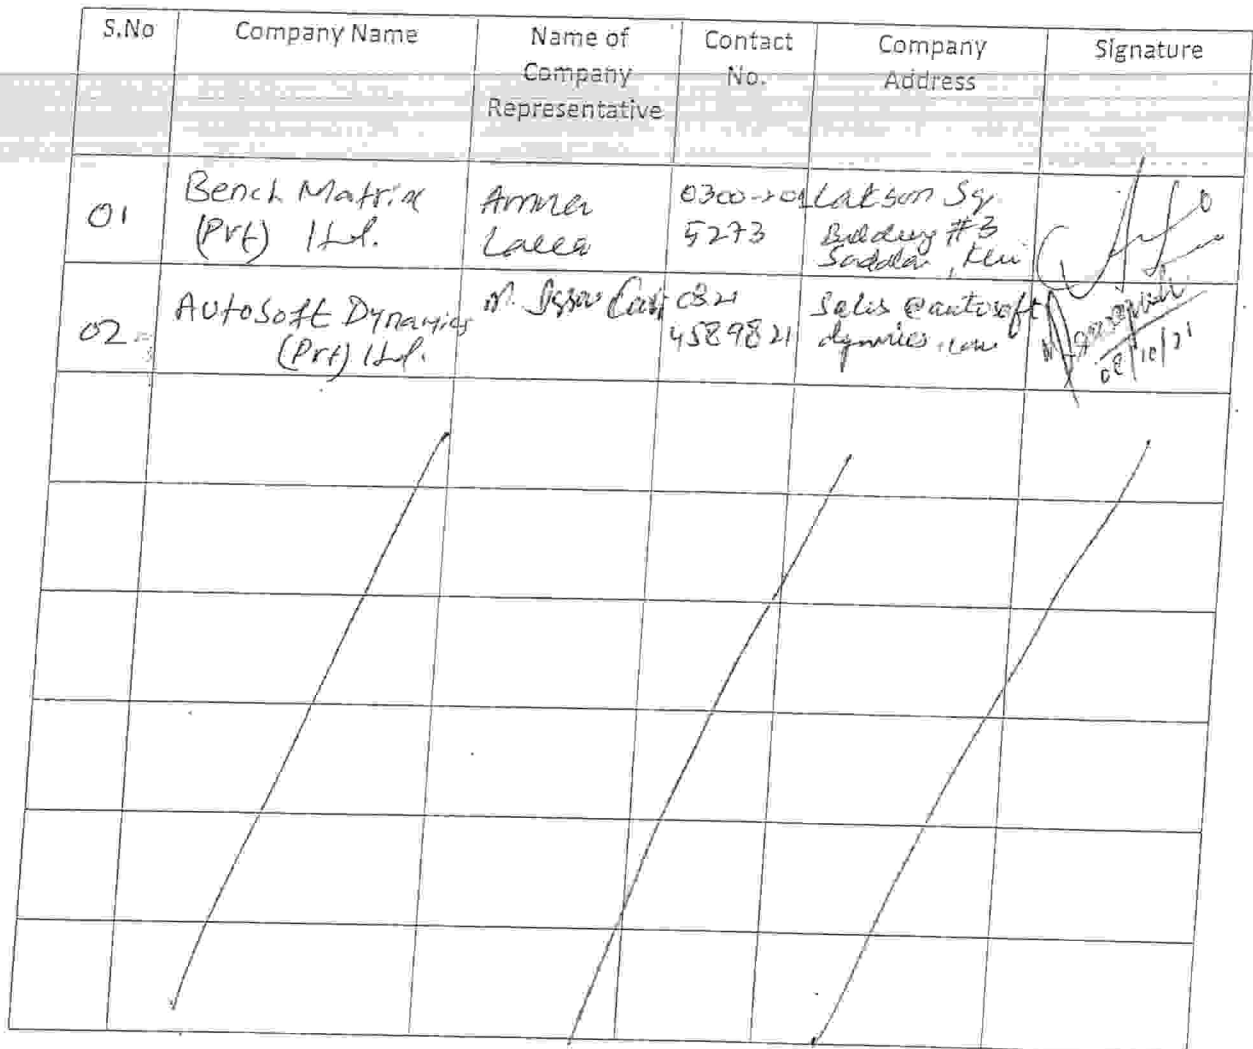 S.No
Company Name
Name of
Company
Representative
Contact
No.
Company
Address
Signature
01
Bench Matrix
(Pvt) Ltd.
Amna
0300-201
5273
Lakson Sq.
Building #3
02
AutoSoft Dynamics
(Pvt) Ltd.
M.
0321
4589821
Sales @autosoft
dynamics.com
08/10/21